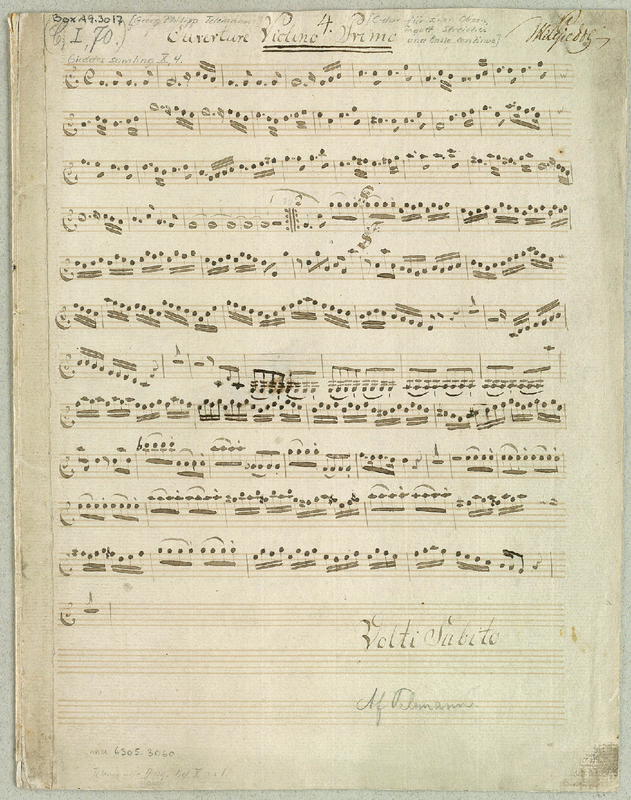 Box A9.3017 [Georg Philipp Telemann: 4. [C-dur für zwei Oboen,
C, I, 70.) Ouverture Violino Primo Fagott, Streicher und Basso continuo]
Giedde samling X, 4.
Volti Subito
Af Telemann
mu 6305.3060